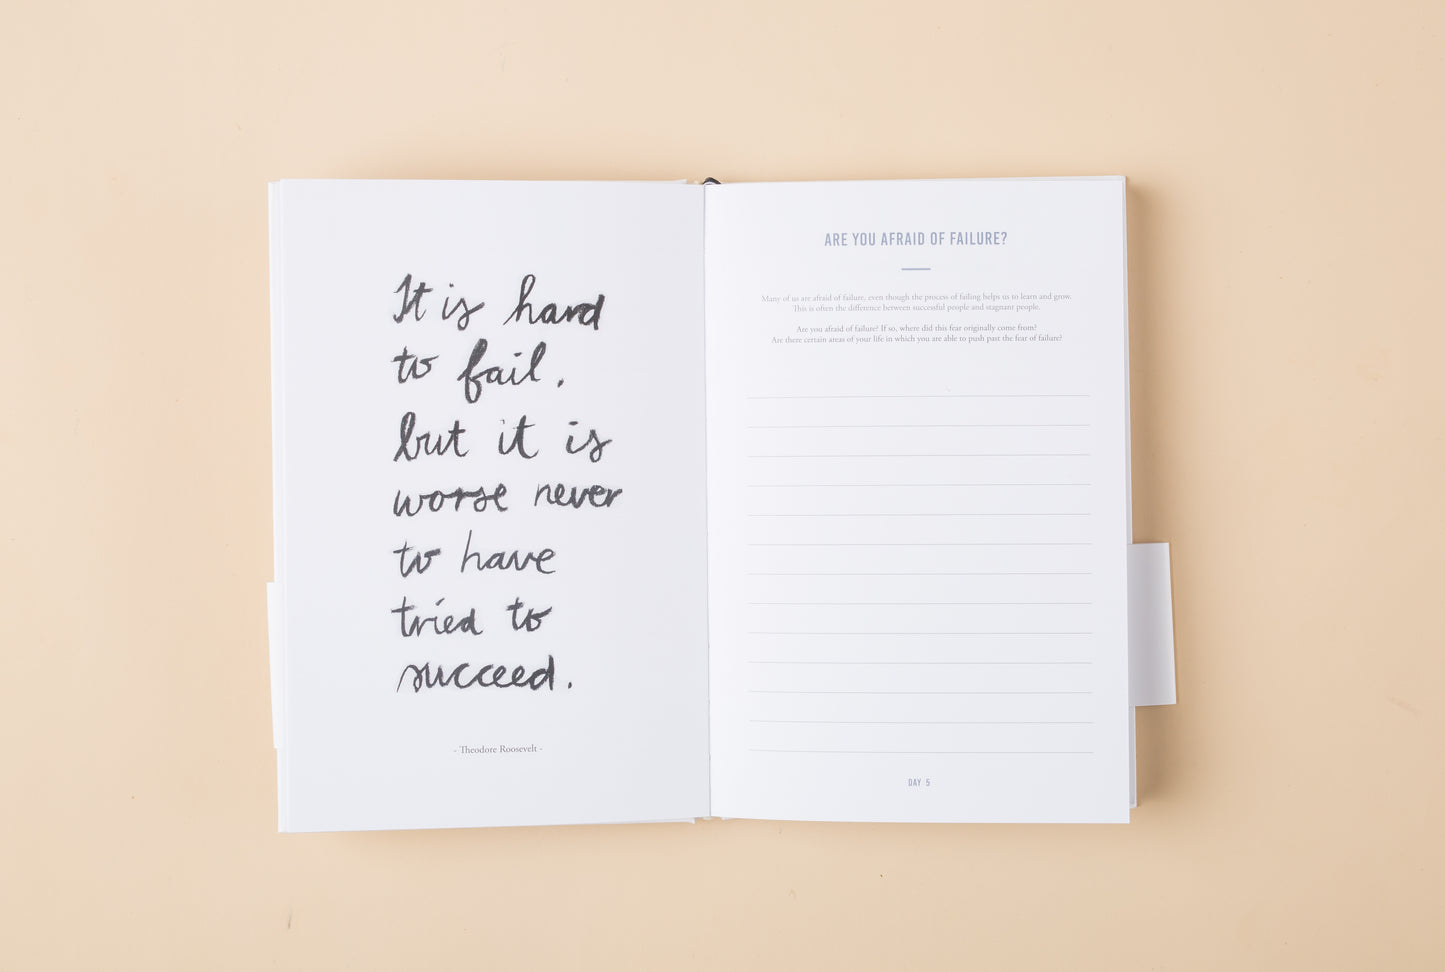 It is hard
to fail,
but it is
worse never
to have
tried to
succeed.
- Theodore Roosevelt -
ARE YOU AFRAID OF FAILURE?
Many of us are afraid of failure, even though the process of failing helps us to learn and grow.
This is often the difference between successful people and stagnant people.
Are you afraid of failure? If so, where did this fear originally come from?
Are there certain areas of your life in which you are able to push past the fear of failure?
DAY 5